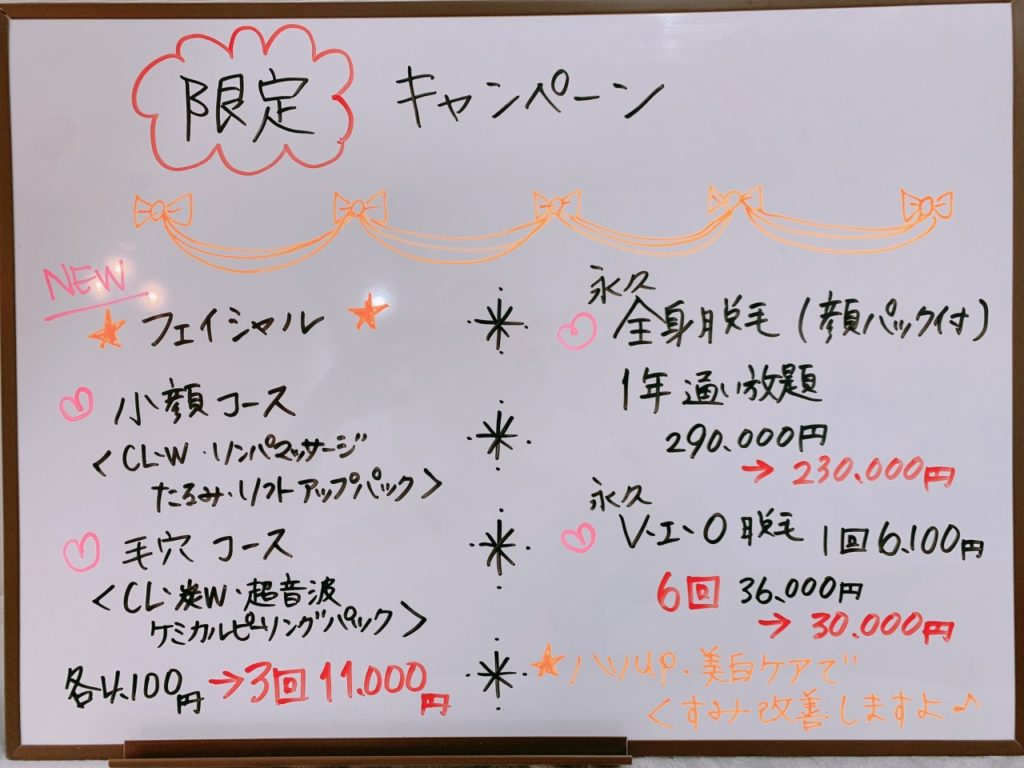 限定 キャンペーン
NEW
フェイシャル
小顔コース
<CL・W・リンパマッサージ
たるみ・リフトアップパック>
毛穴コース
<CL・炭W・超音波
ケミカルピーリングパック>
各4,100円→3回11.000円
永久
全身脱毛(顔パック付)
1年通い放題
290.000円
→230.000円
永久
V・I・O脱毛 1回6.100円
6回 36.000円
→30.000円
★ハリup・美白ケアで
くすみ改善しますよ♪